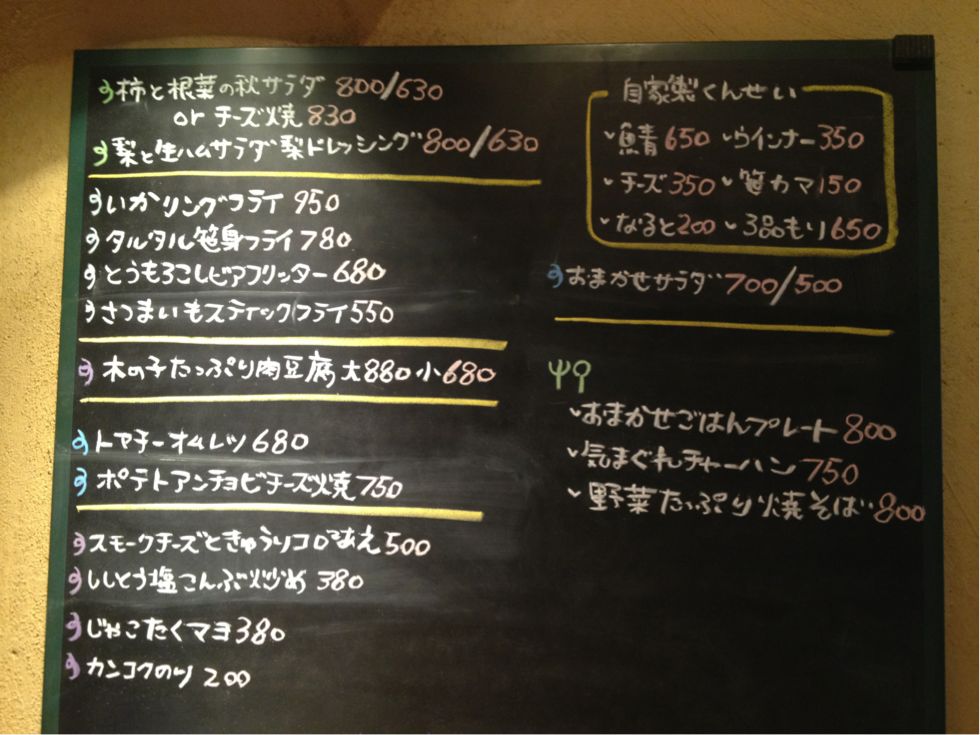 柿と根菜の秋サラダ 800/630
or チーズ焼 830
梨と生ハムサラダ 梨ドレッシング 800/630
いかリングフライ 950
タルタル笹身フライ 780
とうもろこしビアフリッター 680
さつまいもスティックフライ 550
木の子たっぷり肉豆腐 大880 小680
トマチーオムレツ 680
ポテトアンチョビチーズ焼 750
スモークチーズときゅうりコロコロあえ 500
ししとう塩こんぶ炒め 380
じゃこたくマヨ 380
カンコクのり 200
自家製くんせい
鯖 650 ウインナー 350
チーズ 350 笹カマ 150
なると 200 3品もり 650
おまかせサラダ 700/500
おまかせごはんプレート 800
気まぐれチャーハン 750
野菜たっぷり焼そば 800